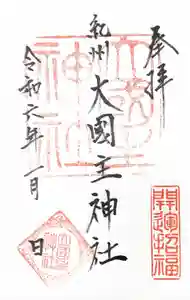 奉拝
紀州
大國主神社
令和六年一月
日
開運招福